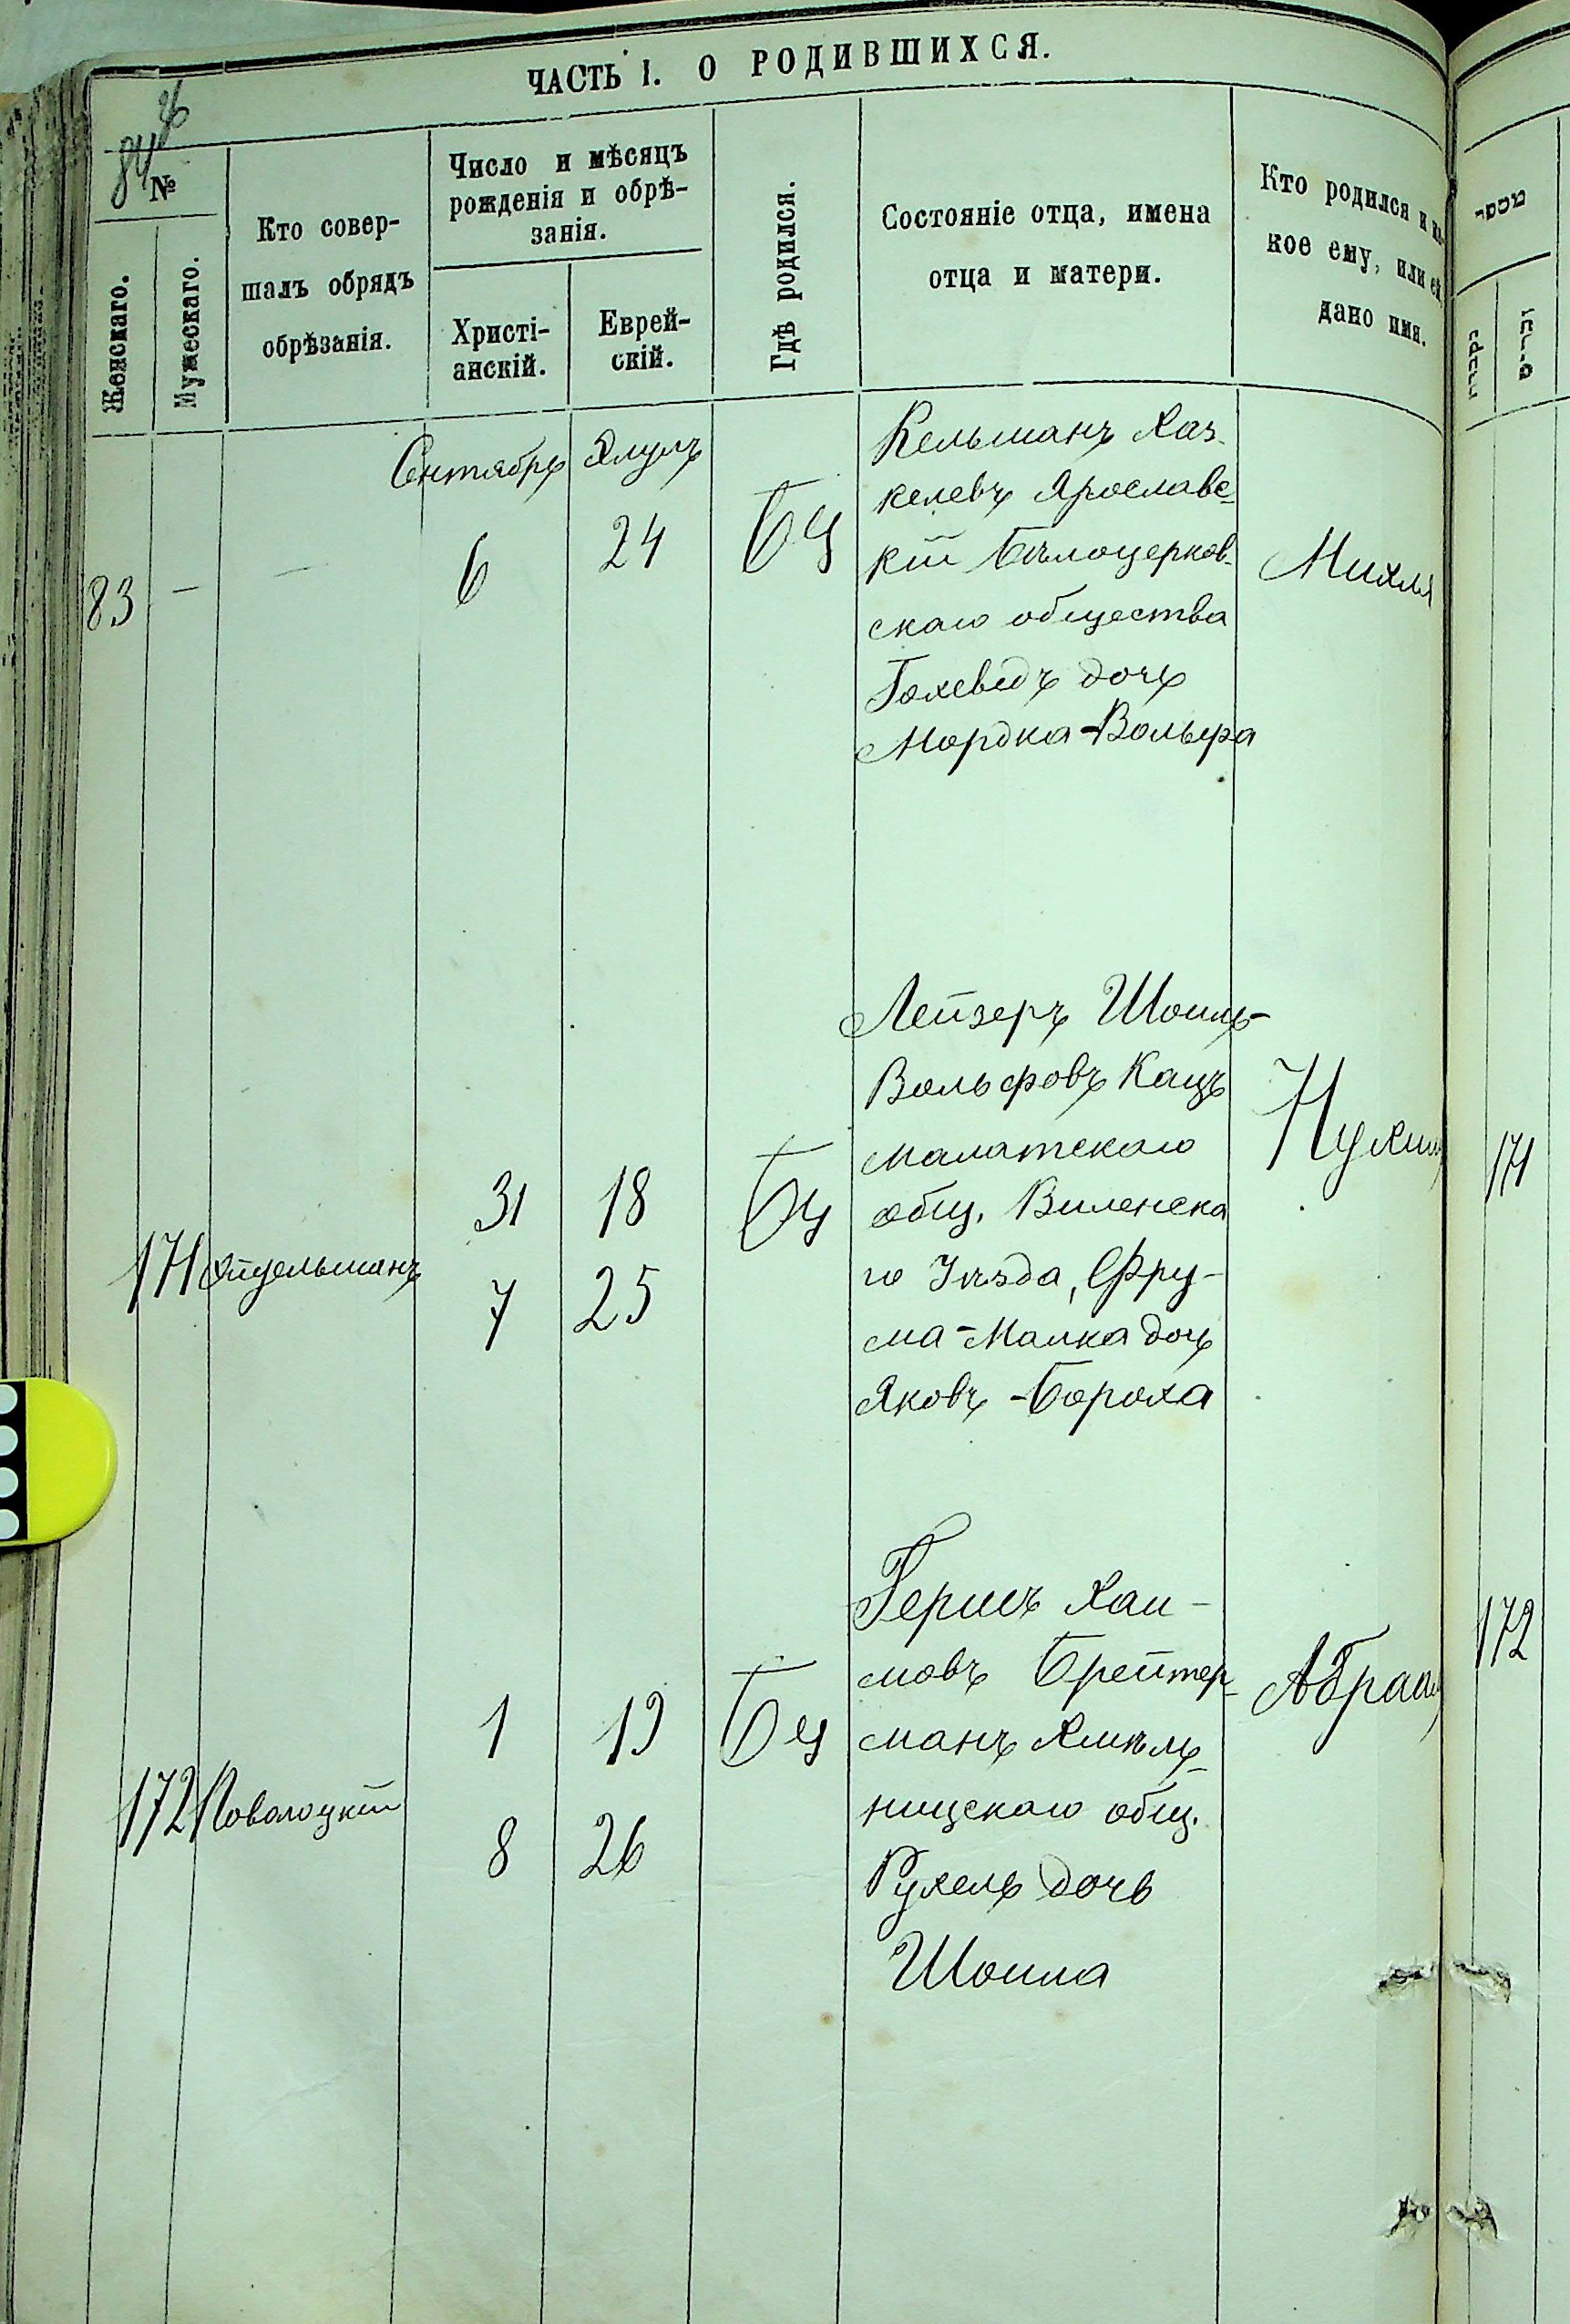 ЧАСТЬ I. О РОДИВШИХСЯ.
№
Женскаго.
Мужескаго.
Кто совер-
шалъ обрядъ
обрѣзанія.
Число и мѣсяцъ
рожденія и обрѣ-
занія.
Христі-
анскій.
Еврей-
скій.
Гдѣ родился.
Состояніе отца, имена
отца и матери.
Кто родился и ка-
кое ему, или ей
дано имя.
מספר
נקבות
זכרים
Сентябрь Элулъ
83 - - 6 24 БЦ
Кельманъ Хаз-
келевъ Ярославс-
кій Бѣлоцерков-
скаго общества
Гохеведъ дочь
Мордка-Вольфа
Михля
171 Эйдельманъ
31 18
7 25
БЦ
Лейзеръ Шоиль-
Вольфовъ Кацъ
малатскаго
общ. Виленска
го Уѣзда, Фру-
ма-Малка дочь
Яковъ-Бороха
Нухим
171
172 Поволоцкій
1 19
8 26
БЦ
Гершъ Хаи-
мовъ Брейтер-
манъ Хмѣль-
ницскаго общ.
Рухель дочь
Шоила
Абрам
172